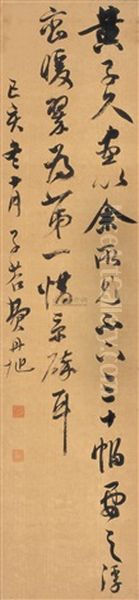 黄子久画以余所见不下三十帧要之浮
峦暖翠为第一惜景碎耳
己亥冬十月 子苕费丹旭